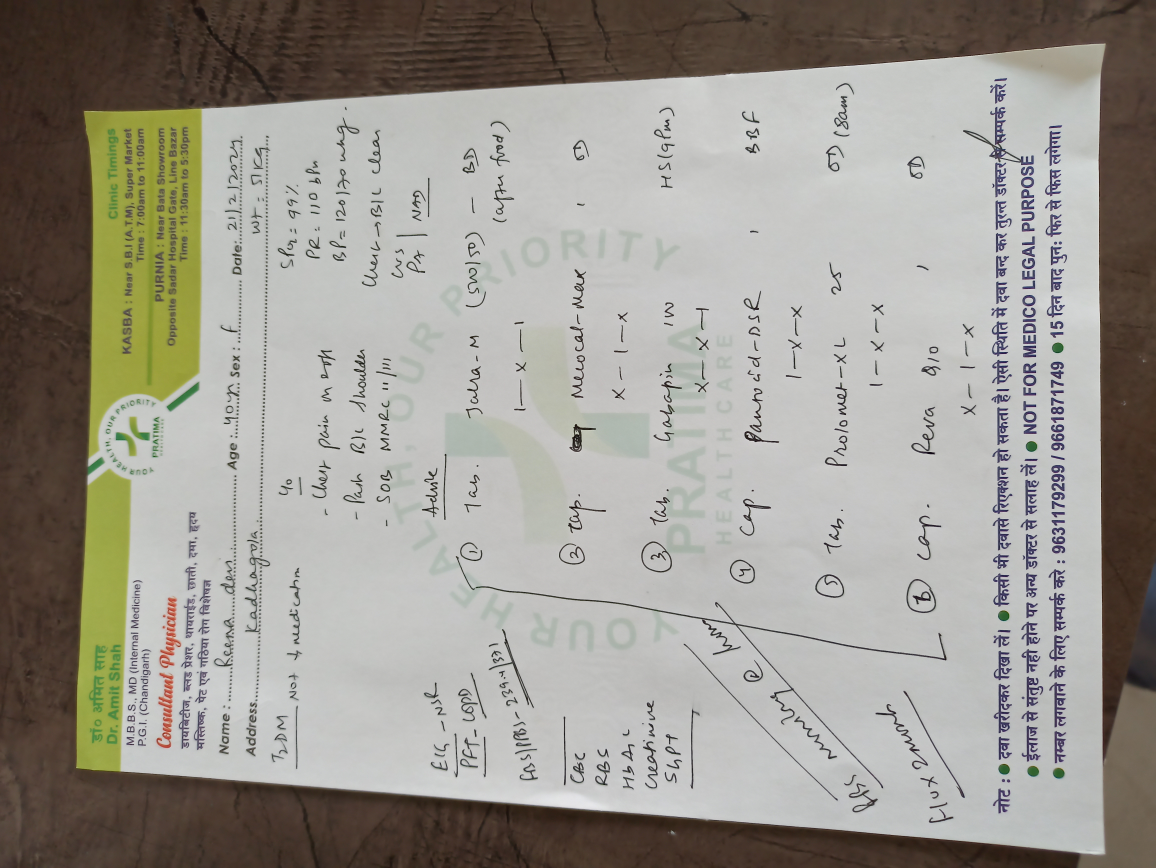 डॉ० अमित साह
Dr. Amit Shah
M.B.B.S., MD (Internal Medicine)
P.G.I. (Chandigarh)
Consultant Physician
डायबिटीज, ब्लड प्रेशर, थायराईड, छाती, दमा, हृदय
मस्तिष्क, पेट एवं गठिया रोग विशेषज्ञ
YOUR HEALTH, OUR PRIORITY
PRATIMA
Clinic Timings
KASBA : Near S.B.I (A.T.M), Super Market
Time : 7:00am to 11:00am
PURNIA : Near Bata Showroom
Opposite Sadar Hospital Gate, Line Bazar
Time : 11:30am to 5:30pm
Name : Reema devi Age : 40yr Sex : F Date: 21/2/2024
Address Kadhagola WT = 51Kg
T2DM Not + medication
C/o
- Chest pain on & off
- Pain B/L shoulder
- SOB MMRC II/III
SPO2 = 99%
PR = 110 bpm
BP = 120/70 mmhg.
Chest → B/L clear
CVS
PA | NAD
Advise
ECG - NSR
PFT - COPD
FBS/PPBS - 239.4/331
CBC
RBS
HbA1c
Creatinine
SGPT
① Tab. Jalra-M (500/50) - BD
1-x-1 (after food)
② Tab. Nervocal-Max , OD
x-1-x
③ Tab. Gabapin HS (9Pm)
x-x-1
④ Cap. Pantocid-DSR , BBF
1-x-x
⑤ Tab. Prolomet-XL 25 OD (8am)
1-x-x
⑥ Cap. Reva D
x-1-x
YOUR HEALTH, OUR PRIORITY
PRATIMA
HEALTHCARE
नोट : ● दवा खरीदकर दिखा लें। ● किसी भी दवासे रिएक्शन हो सकता है। ऐसी स्थिति में दवा बन्द कर तुरन्त डॉक्टर से सम्पर्क करें।
● ईलाज से संतुष्ट नही होने पर अन्य डॉक्टर से सलाह लें। ● NOT FOR MEDICO LEGAL PURPOSE
● नम्बर लगवाने के लिए सम्पर्क करे : 9631179299 / 9661871749 ● 15 दिन बाद पुनः फिर से फिस लगेगा।